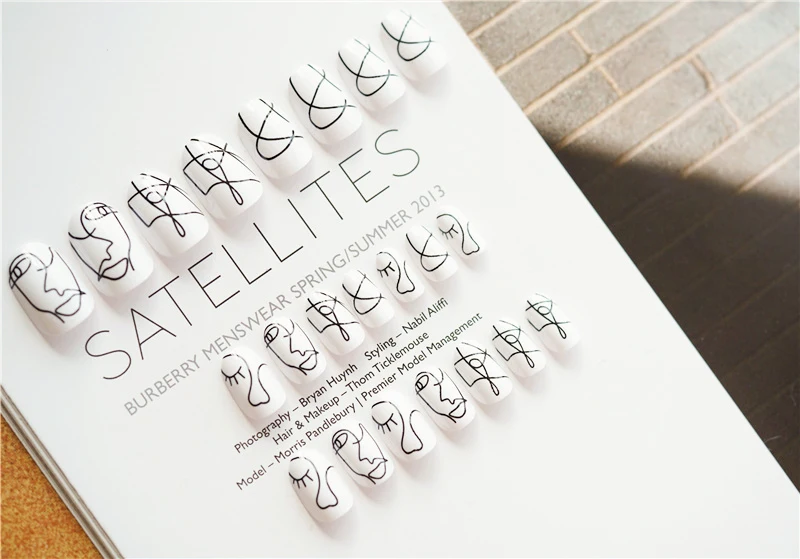 SATELLITES
BURBERRY MENSWEAR SPRING/SUMMER 2013
Photography – Bryan Huynh Styling – Nabil Aliffi
Hair & Makeup – Thom Ticklemouse
Model – Morris Pandlebury | Premier Model Management